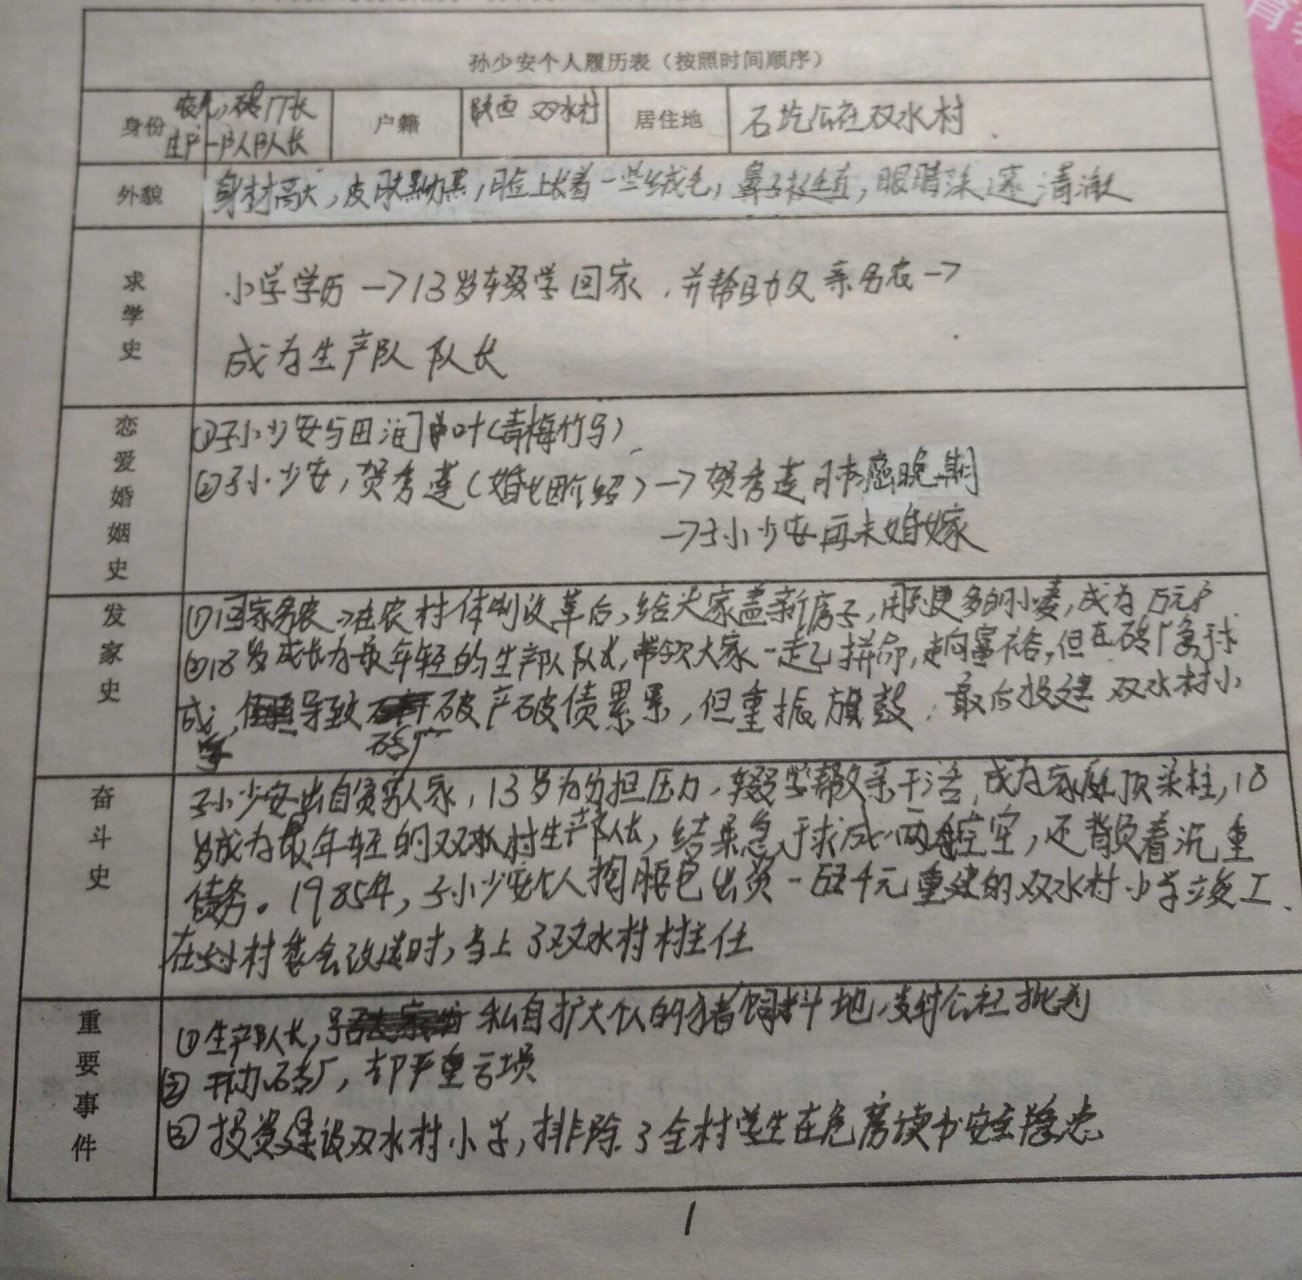 孙少安个人履历表（按照时间顺序）
身份 农民，砖厂厂长 户籍 陕西 双水村 居住地 石圪公社双水村
生产一队队长
外貌 身材高大，皮肤黝黑，脸上长着一些绒毛，鼻子挺直，眼睛深邃清澈
求学史
小学学历→13岁辍学回家，并帮助父亲务农→
成为生产队队长
恋爱婚姻史
①孙少安与田润叶(青梅竹马)
②孙少安，贺秀莲(婚姻介绍)→贺秀莲肺癌晚期
→孙少安再未婚嫁
发家史
①回家务农→在农村体制改革后，给大家盖新房子，用更多的小麦，成为万元户
②18岁成长为最年轻的生产队队长，带领大家一起拼命，走向富裕，但在砖厂急于求
成，但导致砖厂破产破债累累，但重振旗鼓，最后投建双水村小
学
奋斗史
孙少安出自贫穷人家，13岁为分担压力，辍学帮父亲干活，成为家庭顶梁柱，18
岁成为最年轻的双水村生产队长，结果急于求成，两手空空，还背负着沉重
债务。1985年，孙少安个人掏腰包出资一 元重建的双水村小学竣工
在 村委会改选时，当上了双水村村主任
重要事件
①生产队长，私自扩大个人的猪饲料地，受到公社批判
②开办砖厂，却严重亏损
③投资建设双水村小学，排除了全村学生在危房读书安全隐患
1